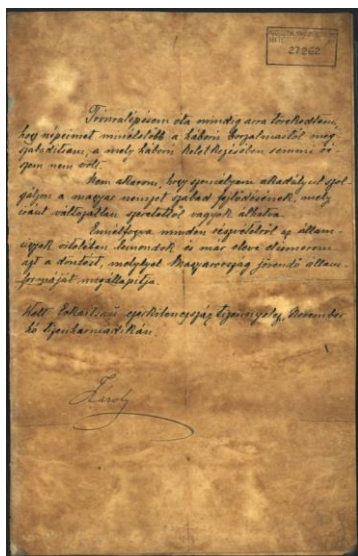 27262
Trónralépésem óta mindig arra törekedtem,
hogy népeimet mielőbb a háború borzalmaitól meg-
szabadítsam, a mely háború keletkezésében semmi ré-
szem nem volt.
Nem akarom, hogy személyem akadályul szol-
gáljon a magyar nemzet szabad fejlődésének, mely
iránt változatlan szeretettől vagyok áthatva.
Ennélfogva minden részvételről az állam-
ügyek vitelében lemondok és már eleve elismerem
azt a döntést, mely Magyarország jövendő állam-
formáját megállapítja.
Kelt Eckartsau, ezerkilencszáz tizennyolc, November
hó tizenharmadikán.
Károly